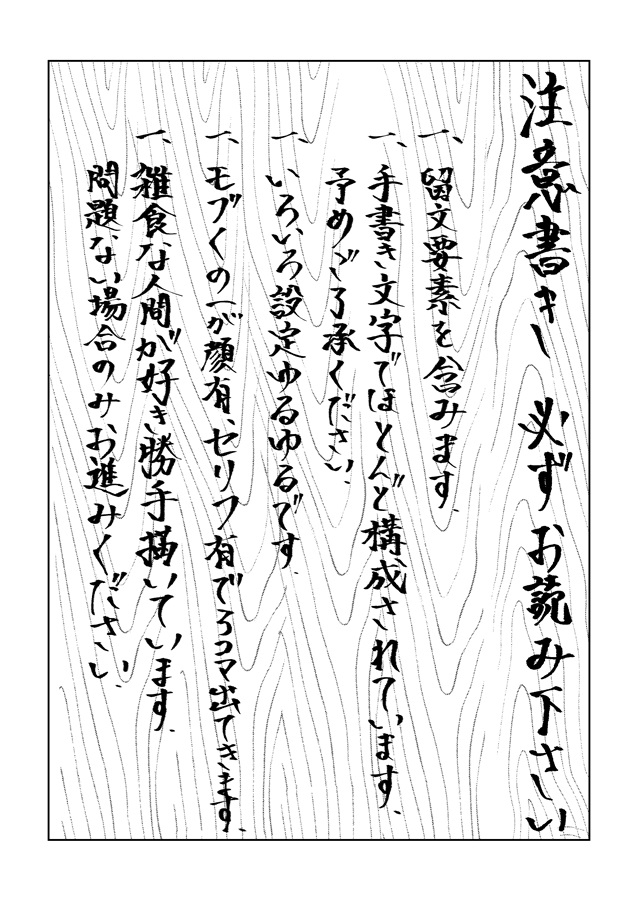 注意書き 必ずお読み下さい
一、留文要素を含みます.
一、手書き文字でほとんど構成されています.
予めご了承ください.
一、いろいろ設定ゆるゆるです.
一、モブくのーが顔有、セリフ有で3コマ出てきます.
一、雑食な人間が好き勝手描いています.
問題ない場合のみお進みください.